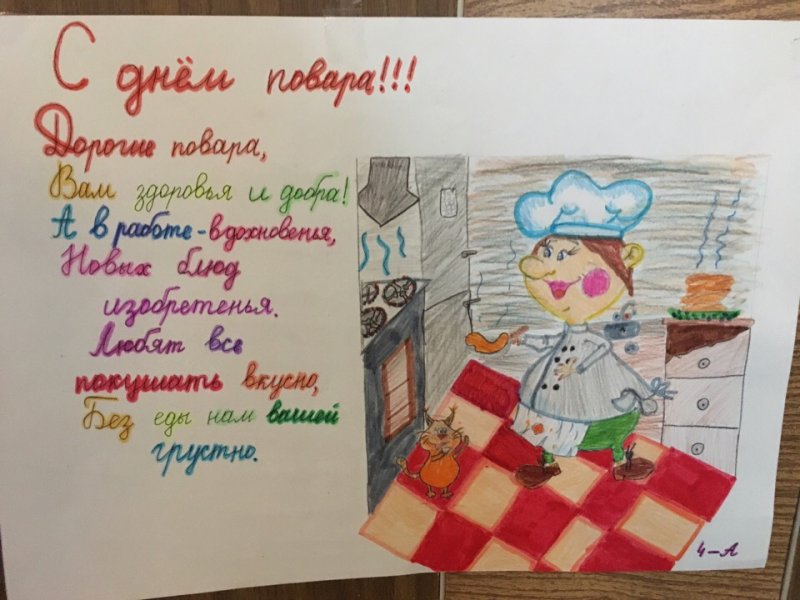 С днём повара!!!
Дорогие повара,
Вам здоровья и добра!
А в работе - вдохновенья,
Новых блюд
изобретенья.
Любят все
покушать вкусно,
Без еды нам вашей
грустно.
4-А